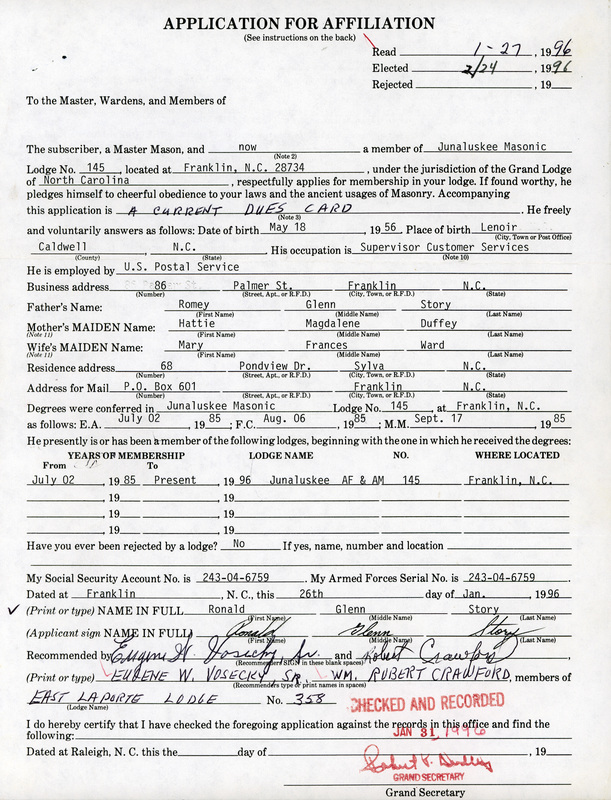 APPLICATION FOR AFFILIATION
(See instructions on the back)
Read 1-27, 1996
Elected 2/24 1996
Rejected , 19
To the Master, Wardens, and Members of
The subscriber, a Master Mason, and now a member of Junaluskee Masonic
(Note 2)
Lodge No. 145, located at Franklin, N.C. 28734, under the jurisdiction of the Grand Lodge
of North Carolina, respectfully applies for membership in your lodge. If found worthy, he
pledges himself to cheerful obedience to your laws and the ancient usages of Masonry. Accompanying
this application is A CURRENT DUES CARD. He freely
(Note 3)
and voluntarily answers as follows: Date of birth May 18, 1956 Place of birth Lenoir
(City, Town or Post Office)
Caldwell N.C. His occupation is Supervisor Customer Services
(County) (State) (Note 10)
He is employed by U.S. Postal Service
Business address 86 Palmer St. Franklin N.C.
(Number) (Street, Apt., or R.F.D.) (City, Town, or R.F.D.) (State)
Father's Name: Romey Glenn Story
(First Name) (Middle Name) (Last Name)
Mother's MAIDEN Name: Hattie Magdalene Duffey
(Note 11) (First Name) (Middle Name) (Last Name)
Wife's MAIDEN Name: Mary Frances Ward
(Note 11) (First Name) (Middle Name) (Last Name)
Residence address 68 Pondview Dr. Sylva N.C.
(Number) (Street, Apt., or R.F.D.) (City, Town, or R.F.D.) (State)
Address for Mail P.O. Box 601 Franklin N.C.
(Number) (Street, Apt. or R.F.D.) (City, Town, or R.F.D.) (State)
Degrees were conferred in Junaluskee Masonic Lodge No. 145, at Franklin, N.C.
as follows: E.A. July 02, 1985; F.C. Aug. 06, 1985; M.M. Sept. 17, 1985
He presently is or has been a member of the following lodges, beginning with the one in which he received the degrees:
YEARS OF MEMBERSHIP LODGE NAME NO. WHERE LOCATED
From To
July 02, 1985 Present, 1996 Junaluskee AF & AM 145 Franklin, N.C.
, 19 , 19
, 19 , 19
, 19 , 19
Have you ever been rejected by a lodge? No If yes, name, number and location
My Social Security Account No. is 243-04-6759 My Armed Forces Serial No. is 243-04-6759
Dated at Franklin, N. C., this 26th day of Jan., 1996
(Print or type) NAME IN FULL Ronald Glenn Story
(First Name) (Middle Name) (Last Name)
(Applicant sign NAME IN FULL) Ronald Glenn Story
(First Name) (Middle Name) (Last Name)
Recommended by Eugene W. Vosecky, Sr. and Robert Crawford
(Recommenders SIGN in these blank spaces)
(Print or type) EUGENE W. VOSECKY, SR. WM. ROBERT CRAWFORD, members of
(Recommenders type or print names in spaces)
EAST LAPORTE LODGE No. 358
(Lodge Name)
CHECKED AND RECORDED
I do hereby certify that I have checked the foregoing application against the records in this office and find the
following:
JAN 31, 1996
Dated at Raleigh, N. C. this the day of , 19
GRAND SECRETARY
Grand Secretary